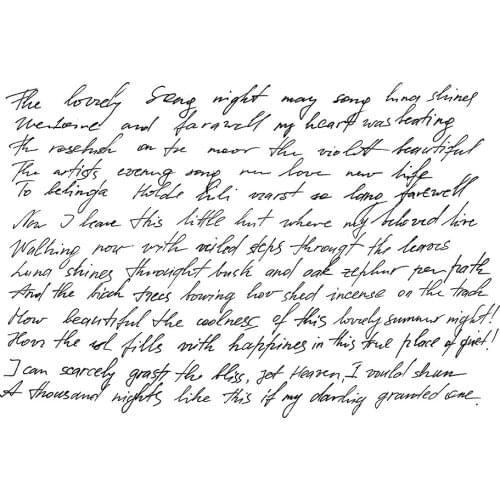 The lovely Song night may song luna shines
Welcome and farewell my heart was beating
the rosebush on the moor the violet beautiful
The artists evening song new love new life
To belinda Holde Lili warst so long farewell
Now I leave this little hut where my beloved live
Walking now with veiled steps througt the leaves
Luna shines throught bush and oak zephur per path
And the birch trees bowing low shed incense on the track
How beautiful the coolness of this lovely summer night!
How the soul fills with happiness in this true place of quiet!
I can scarcely grasp the bliss, yet Heaven, I would shun
A thousand nights like this if my darling granted one.